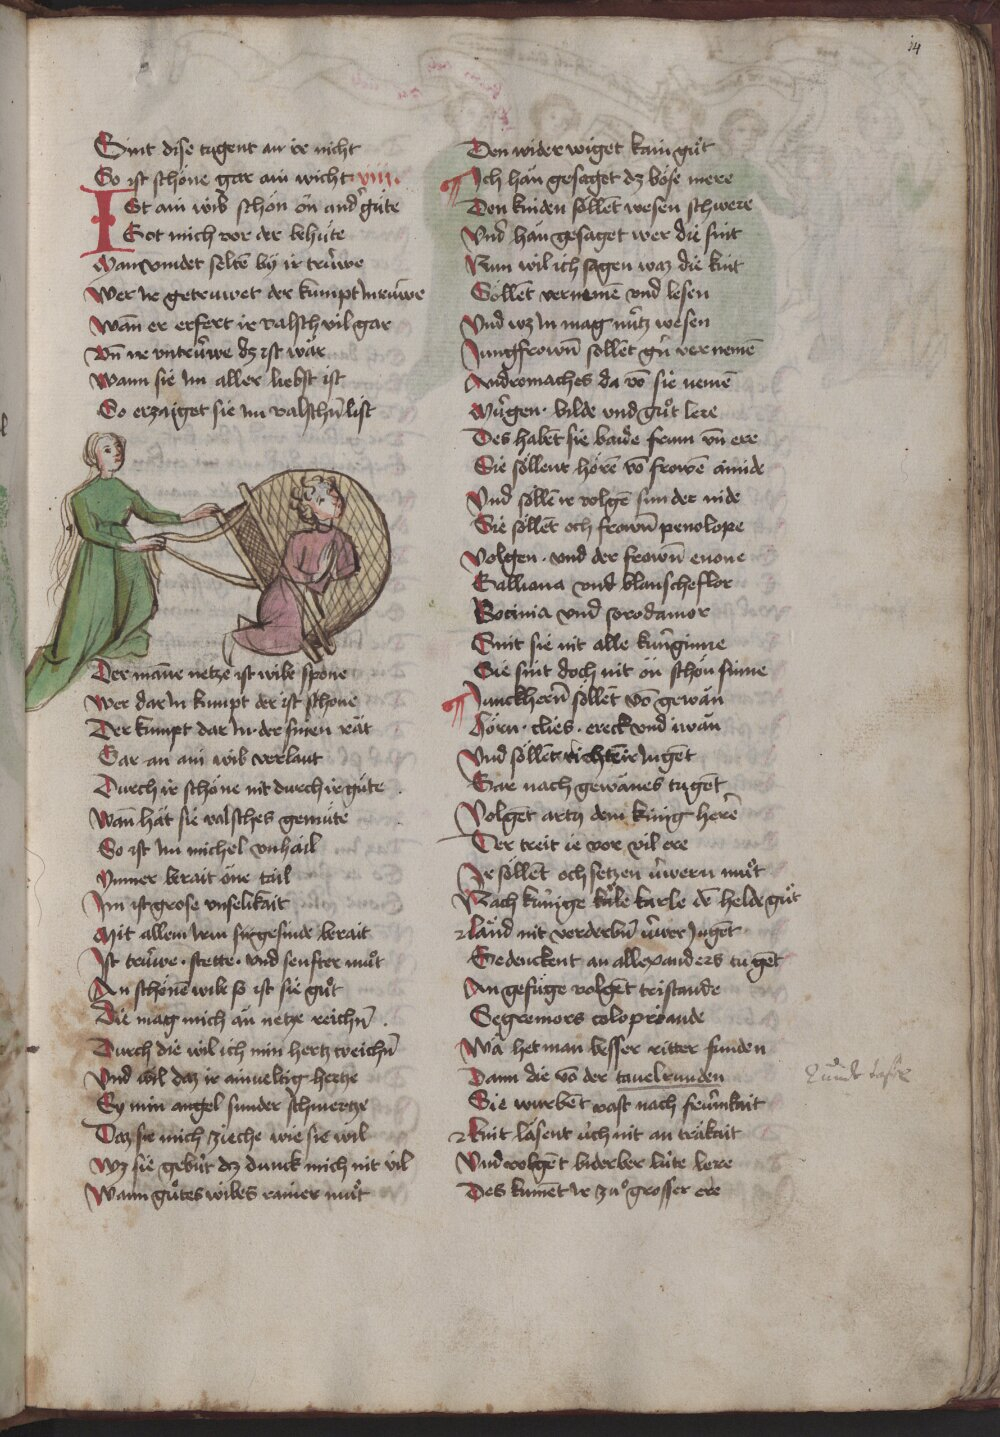 14
Sint dise tugent an ir nicht
So ist schöne gar ain wicht viiij.
Ist ain wib schön ōn and̕ güte
Got mich vor der behüte
Man vindet seltē by ir trüwe
Wer ir getruwet der kumpt In rüwe
Wān er erfert ir valsch vil gar
Vn̄ ir vntrüwe dz ist wār
Wann sie Im aller liebst ist
So erzaiget sie Im valschn̄ list
Der māne netze ist wibe schone
Wer dar In kumpt der ist schone
Der kumpt dar In der sinen rāt
Gar an ain wib verlaut
Durch ir schöne nit durch ir güte
Wān hät sie valsches gemüte
So ist Im michel vnhail
Ymmer berait öne tail
Im ist grose vnselikait
Mit allem Irm Ingesinde berait
Ist trüwe · stette · vnd senfter můt
An schönē wibe so ist sie gůt
Die mag mich än netze reichn̄ .
Durch die wil ich min hertz weichn̄
Vnd wil daz ir ainueltig hertze
Sy min angel sunder schmertze
Daz sie mich zieche wie sie wil
Wz sie gebüt dz dunck mich nit vil
Wann gůtes wibes rainer můt
Den wider wiget kain gůt
Ich hān gesaget dz böse mere
Den kinden söllēt wesen schwere
Vnd̕ hän gesaget wer die sint
Nun wil ich sagen waz die kint
Söllēt vernemē vnd lesen
Vnd wz In mag nütz wesen
Jungfrown̄ söllēt gn̄ vernemē
Andromaches da vō sie nemē
Mügen · bilde vnd gůt lere
Des habēt sie baide frum vn̄ ere
Sie söllent hörē vō frowē ainide
Vnd söllē ir volgē sunder nide
Sie söllēt och frown̄ penolope
Volgen · vnd der frown̄ enone
Galliana vnd blanscheflor
Botinia vnd sorodamor
Sint sie nit alle küngunne
Sie sint doch nit ōn schön sinne
Junckhern̄ söllēt vō gewän
Hörn · clies · ereck vnd iwän
Vnd söllēt richtē ir Iugēt
Gar nach gewänes tugēt
Volgēt artus dem künig herē
Der treit ie vor vil ere
Ir söllēt och setzen üwern můt
Nach künige käle karle dē helde gůt
Länd nit verderbn̄ üwer Iugēt
Gedenckent an allexanders tugēt
An gefüge volget tristande
Segremors coloprēande
Wä het man besser ritter funden
Dann die vō der tauelrunden
Sie wurbēt vast nach frümkait
Kint läsent üch nit an träkait
Vnd volgēt biderber lüte lere
Des kumēt Ir zů grosser ere